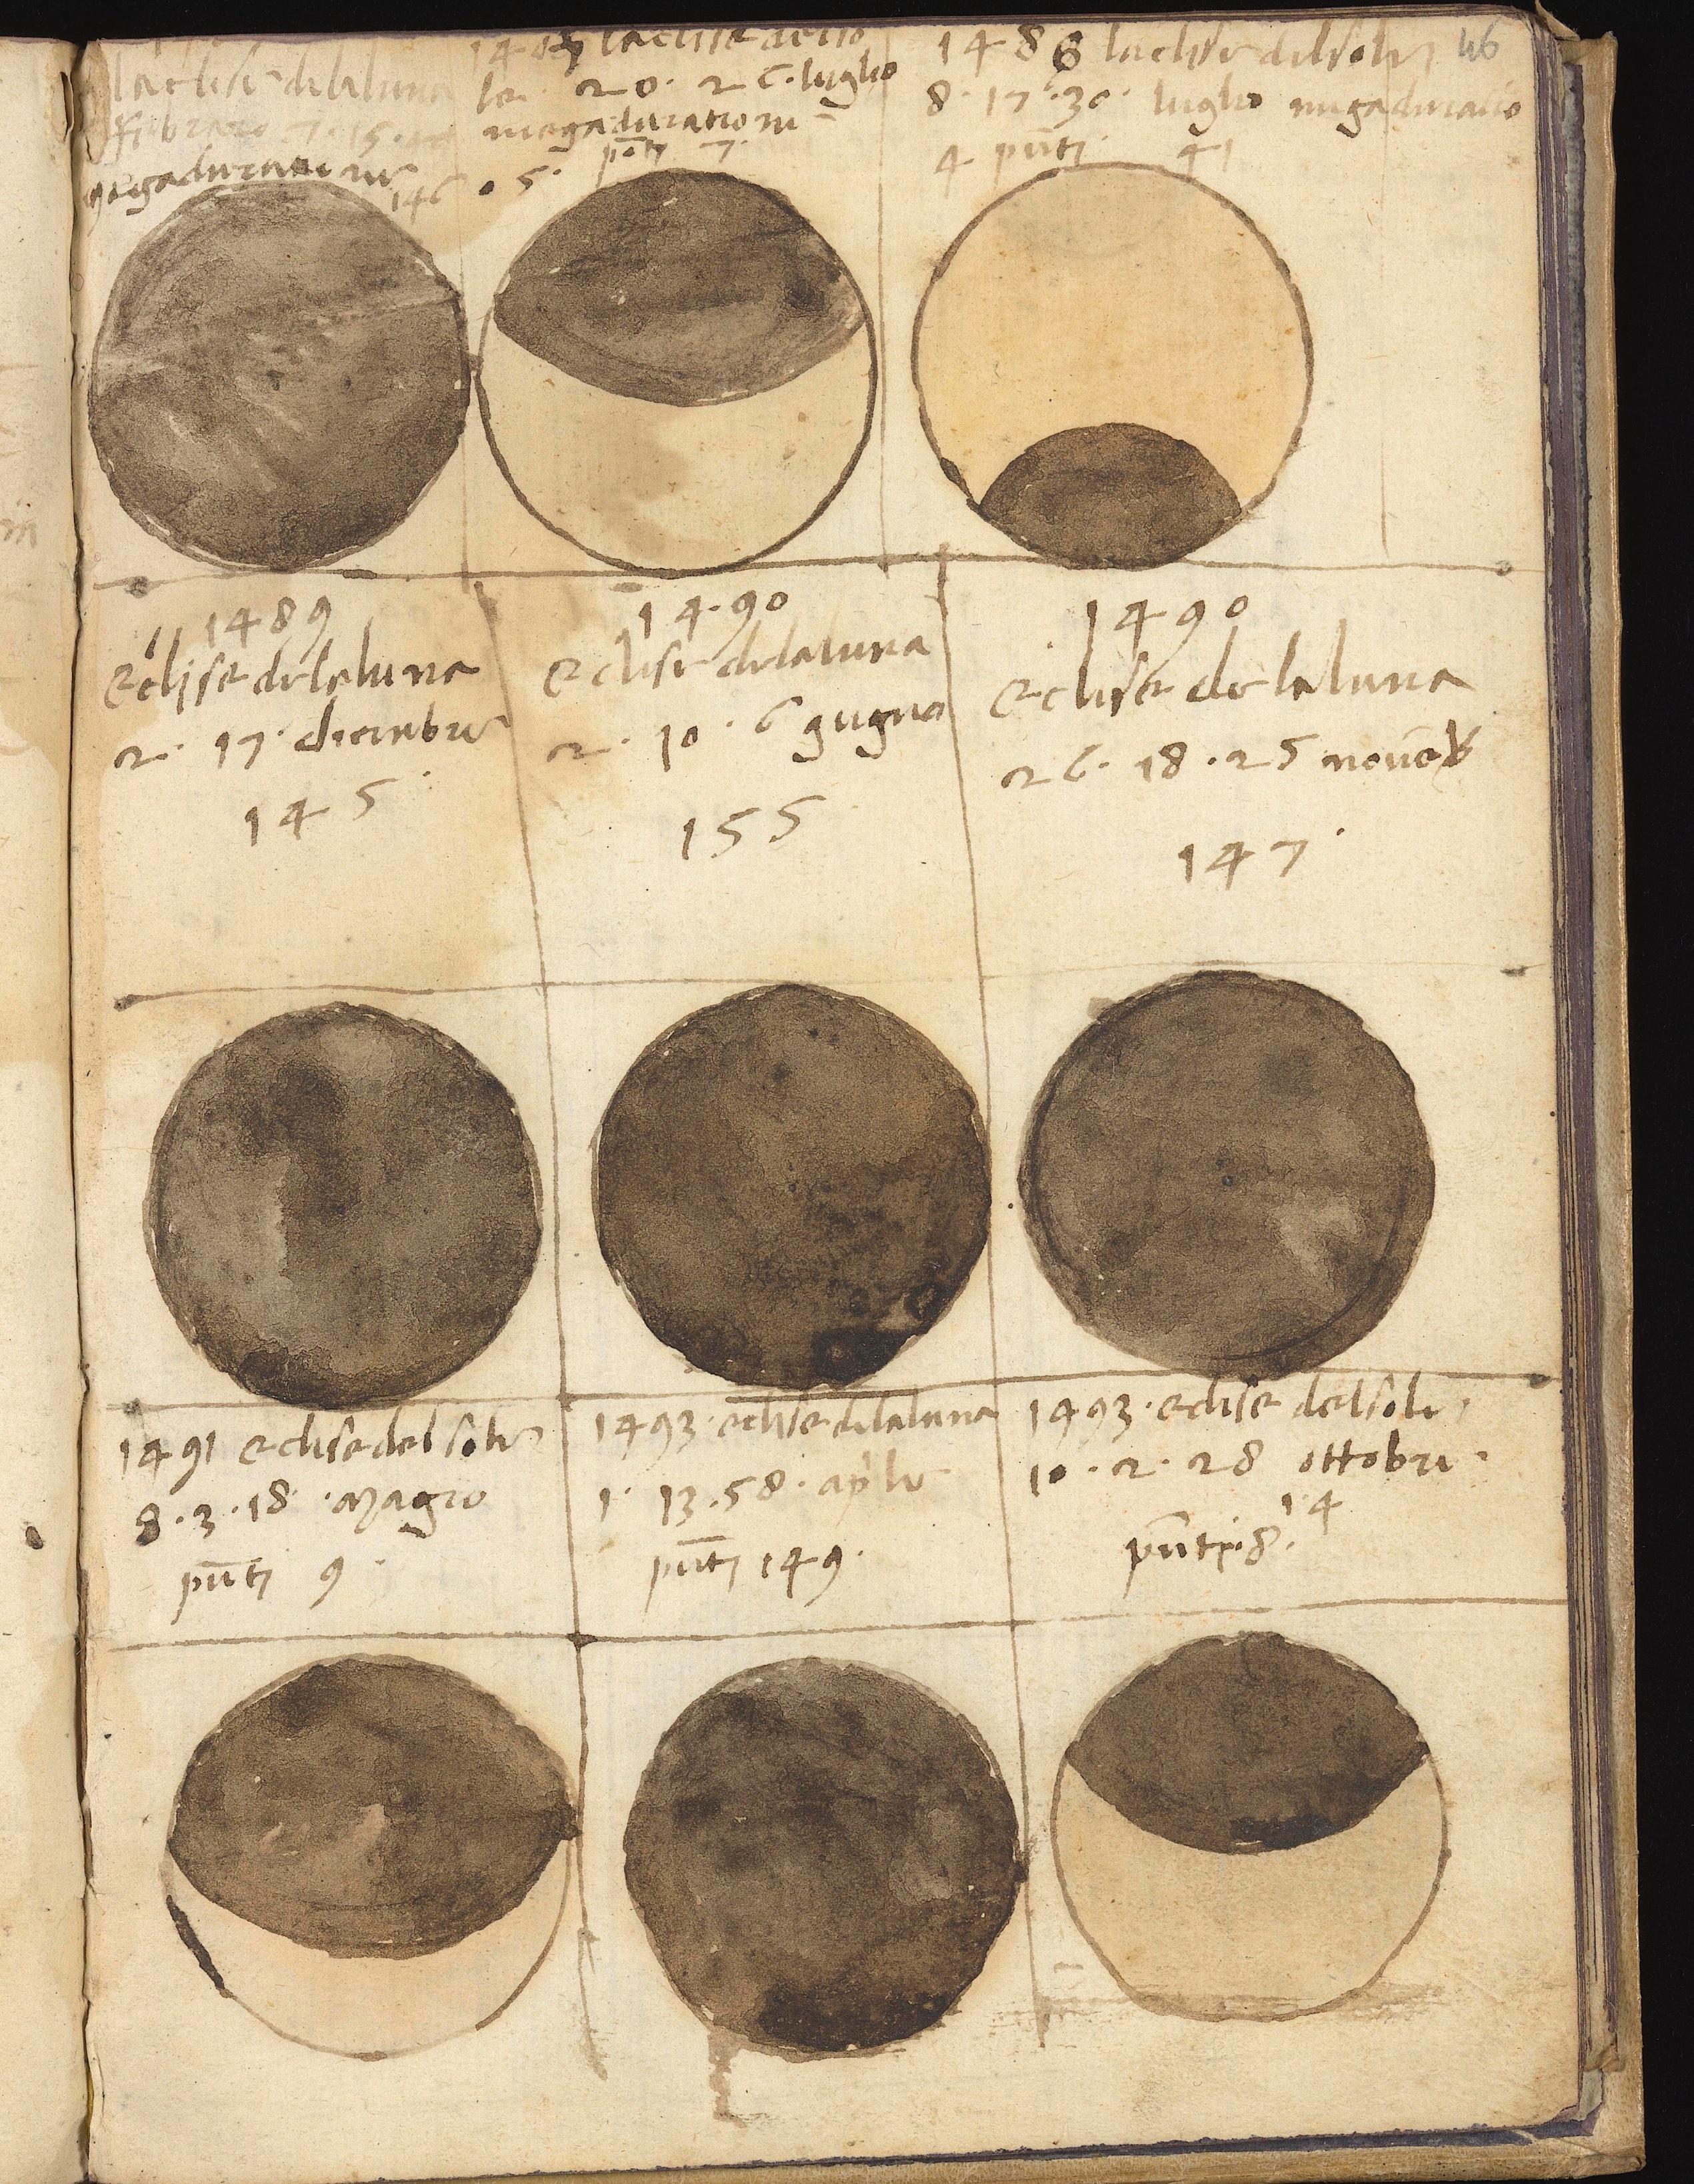 46
laeclise dela luna
febraro 7 · 15 ·
megaduratione
146
laeclise delso
le 20 · 26 · luglio
megaduratione
· 5 · pōti 7 ·
1486 laeclise delsole
8 · 17 · 30 · luglio megaduratio
4 pūti 41
1489
eclise dela luna
2 · 17 · dicenbre
145 ·
14 · 90
eclise dela luna
2 · 10 · 6 gugno
155
1490
eclise de la luna
26 · 18 · 25 novēb
147 ·
1491 eclise del sole
8 · 3 · 18 · Magio
pūti 9 ·
1493 · eclise dela luna
1 · 13 · 58 · aple
pūti 149 ·
1493 · eclise delsole
10 · 2 · 28 ottobre ·
1 4
pūti · 8 ·